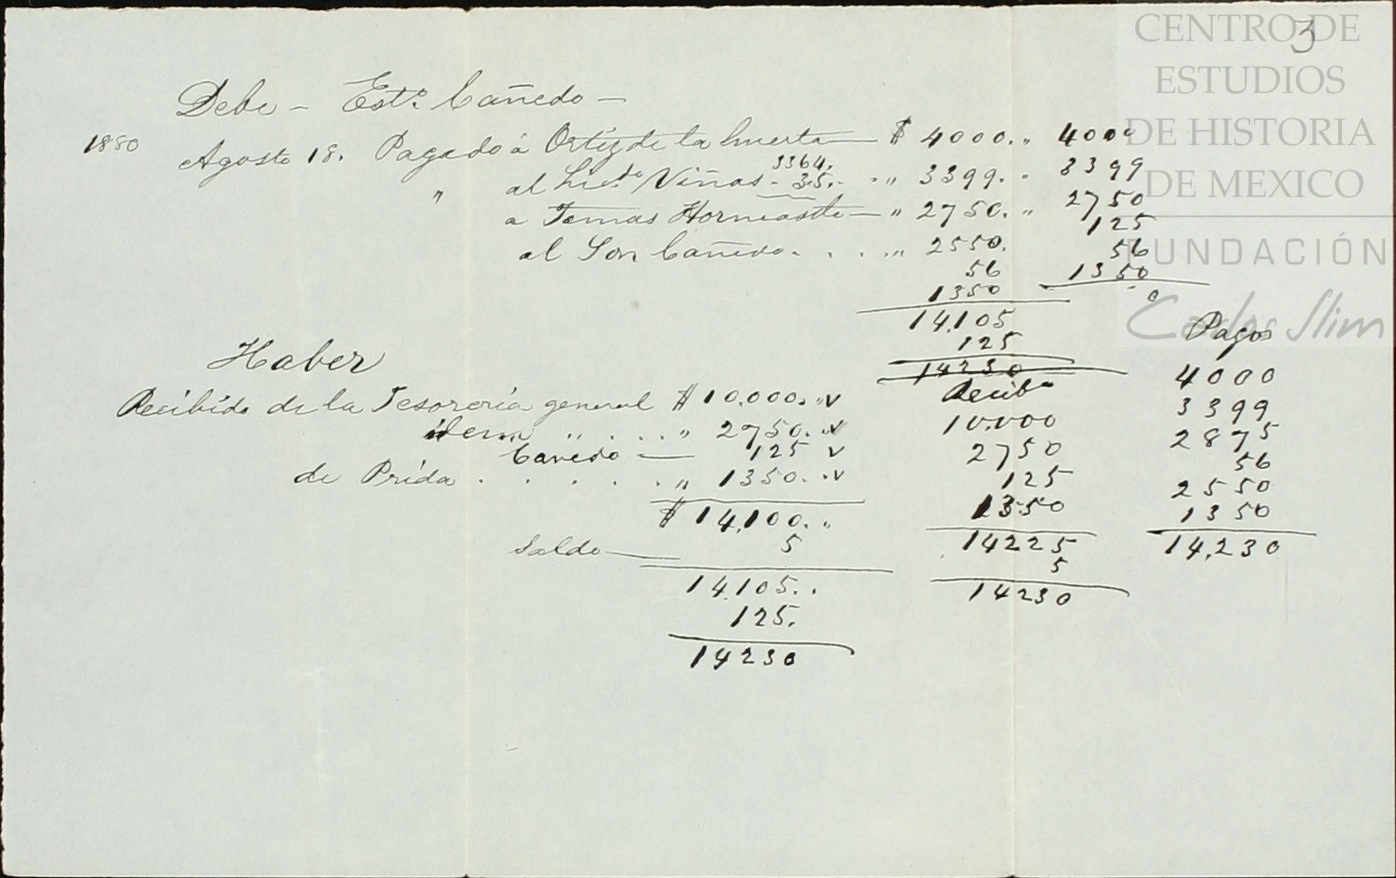 3
CENTRO DE
ESTUDIOS
DE HISTORIA
DE MEXICO
FUNDACIÓN
Carlos Slim
Debe – Esto. Cañedo –
1880
Agosto 18. Pagado á Ortiz de la huerta — $ 4000. „ 4000
3364.
„ al Licdo. Viñas - 35. - . „ 3399. „ 3399
a Tomas Horncastle — „ 2750. „ 2750
125
al Sor Cañedo. . . . „ 2550.
56
56
1350
1350
0
14,105
125
14230
Haber
Recibido de la Tesoreria general $ 10.000. „ v
idem „ . . . „ 2750. „ v
Cañedo — 125 v
de Prida . . . . . „ 1350. „ v
$ 14,100. „
Saldo — 5
14,105. .
125.
14230
Recibo
10.000
2750
125
1350
14225
5
14230
Pagos
4000
3399
2875
56
2550
1350
14,230